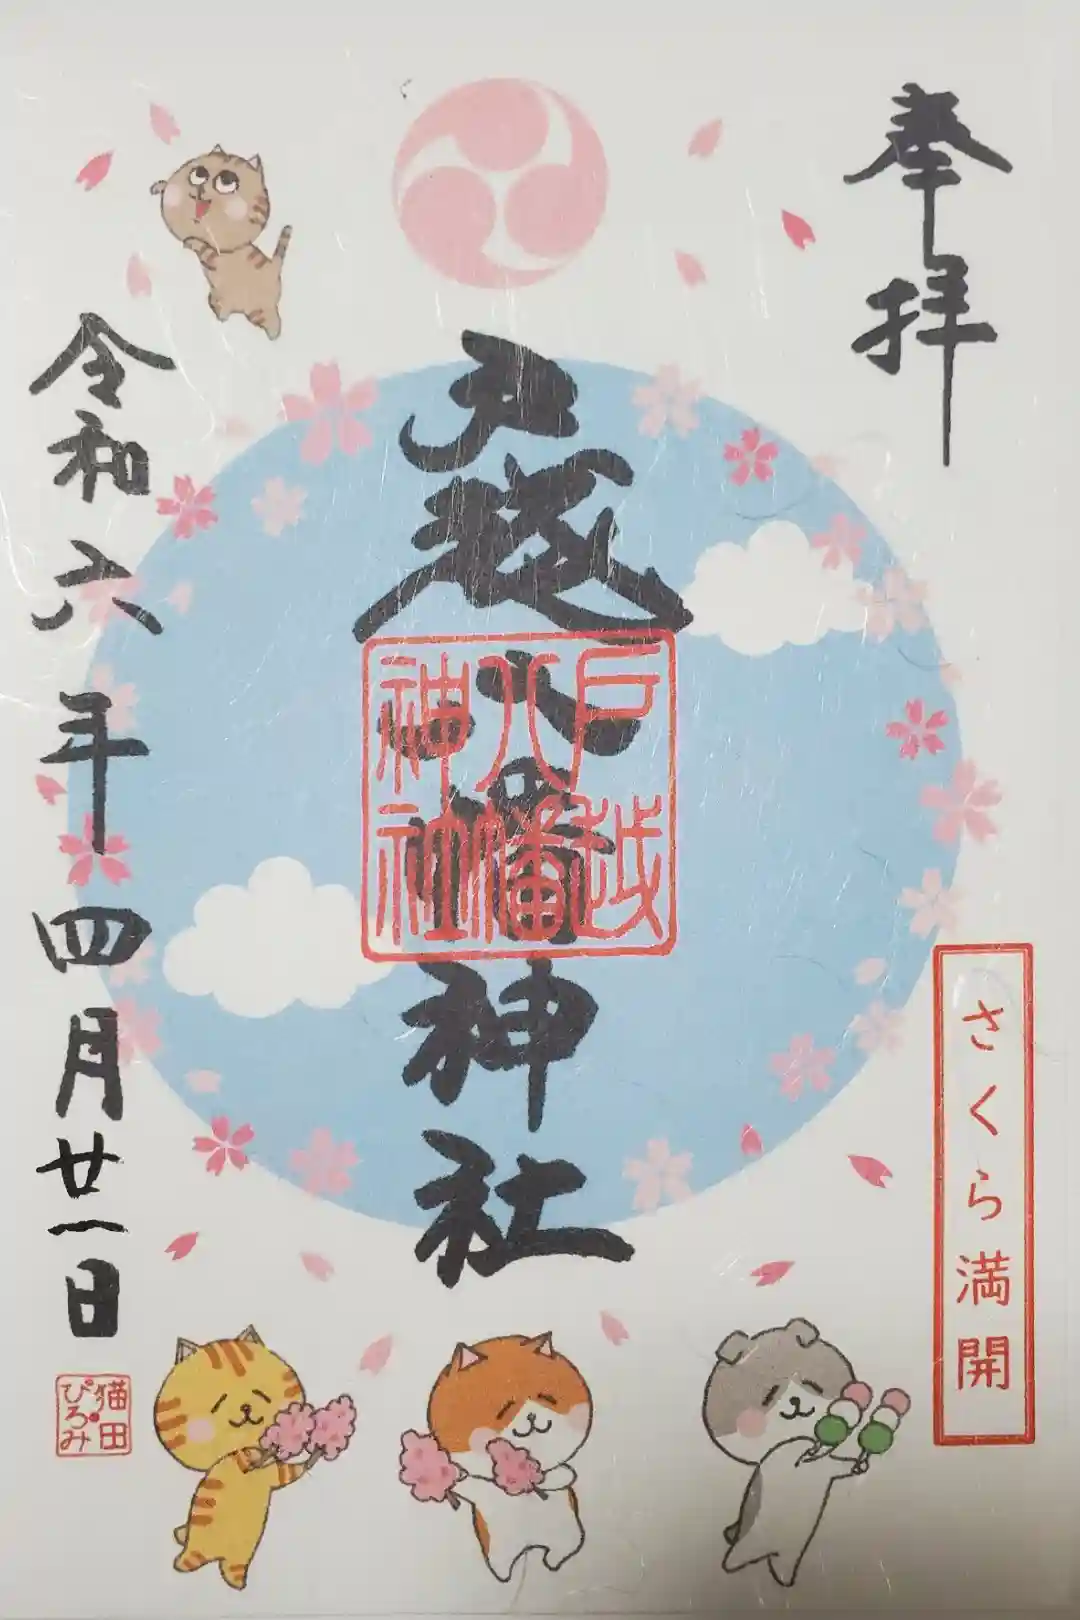 奉拝
戸越八幡神社
戸越
八幡
神社
令和六年四月廿一日
さくら満開
猫田
ぴろみ